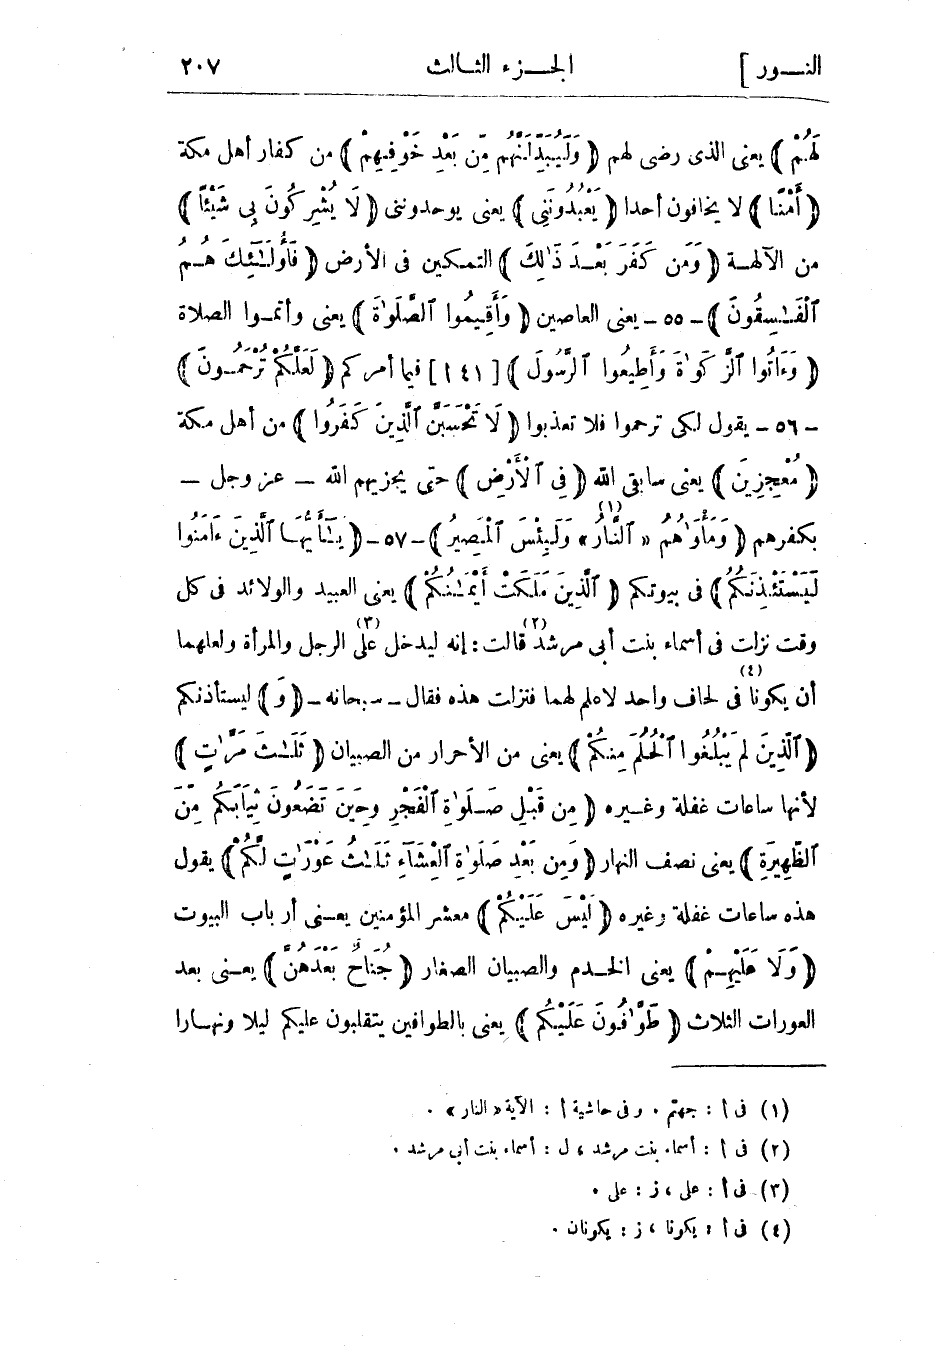 النــور ] الجــزء الثـالث ٢٠٧
لَهُمْ ﴾ يعنى الذى رضى لهم ﴿ وَلَيُبَدِّلَنَّهُم مِّن بَعْدِ خَوْفِهِمْ ﴾ من كفار أهل مكة
﴿ أَمْنًا ﴾ لا يخافون أحدا ﴿ يَعْبُدُونَنِى ﴾ يعنى يوحدوننى ﴿ لَا يُشْرِكُونَ بِى شَيْئًا ﴾
من الآلهـة ﴿ وَمَن كَفَرَ بَعْـدَ ذَٰلِكَ ﴾ التمكين فى الأرض ﴿ فَأُولَـٰٓئِكَ هُـمُ
ٱلْفَـٰسِقُونَ ﴾ ـ ٥٥ ـ يعنى العاصين ﴿ وَأَقِيمُوا ٱلصَّلَوٰةَ ﴾ يعنى وأتمـوا الصلاة
﴿ وَءَاتُوا ٱلزَّكَوٰةَ وَأَطِيعُوا ٱلرَّسُولَ ﴾ [ ٤١ ا ] فيما أمركم ﴿ لَعَلَّكُمْ تُرْحَمُـونَ ﴾
ـ ٥٦ ـ يقول لكى ترحموا فلا تعذبوا ﴿ لَا تَحْسَبَنَّ ٱلَّذِينَ كَفَرُوا ﴾ من أهل مكة
﴿ مُعْجِزِينَ ﴾ يعنى سابقى الله ﴿ فِى ٱلْأَرْضِ ﴾ حتى يجزيهم الله ـ عز وجل ـ
بكفرهم ﴿ وَمَأْوَىٰهُمُ « ٱلنَّارُ(١) » وَلَبِئْسَ ٱلْمَصِيرُ ﴾ ـ ٥٧ ـ ﴿ يَـٰٓأَيُّهَـا ٱلَّذِينَ ءَامَنُوا
لِيَسْتَـْٔذِنكُمُ ﴾ فى بيوتكم ﴿ ٱلَّذِينَ مَلَكَتْ أَيْمَـٰنُكُمْ ﴾ يعنى العبيد والولائد فى كل
وقت نزلت فى أسماء بنت أبى مرشد(٢) قالت : إنه ليدخل على(٣) الرجل والمرأة ولعلهما
أن يكونا(٤) فى لحاف واحد لا علم لهما فنزلت هذه فقال ـ سبحانه ـ ﴿ وَ ﴾ ليستأذنكم
﴿ ٱلَّذِينَ لَمْ يَبْلُغُوا ٱلْحُلُمَ مِنكُمْ ﴾ يعنى من الأحرار من الصبيان ﴿ ثَلَـٰثَ مَرَّٰتٍ ﴾
لأنها ساعات غفلة وغـيره ﴿ مِن قَبْلِ صَـلَوٰةِ ٱلْفَجْرِ وَحِينَ تَضَعُونَ ثِيَابَكُم مِّنَ
ٱلظَّهِيرَةِ ﴾ يعنى نصف النهار ﴿ وَمِن بَعْدِ صَلَوٰةِ ٱلْعِشَآءِ ثَلَـٰثُ عَوْرَٰتٍ لَّكُمْ ﴾ يقول
هذه ساعات غفلة وغيره ﴿ لَيْسَ عَلَيْكُمْ ﴾ معشر المؤمنين يعـنى أرباب البيوت
﴿ وَلَا عَلَيْهِـمْ ﴾ يعنى الخـدم والصبيان الصغار ﴿ جُنَاحٌ بَعْدَهُنَّ ﴾ يعـنى بعد
العورات الثلاث ﴿ طَوَّٰفُونَ عَلَيْكُم ﴾ يعنى بالطوافين يتقلبون عليكم ليلا ونهـارا
(١) فى أ : جهنم . وفى حاشية أ : الآية « النار » .
(٢) فى أ : أسماء بنت مرشد ، ل : أسماء بنت أبى مرشد .
(٣) فى أ : على ، ز : على .
(٤) فى أ : يكونا ، ز : يكونان .